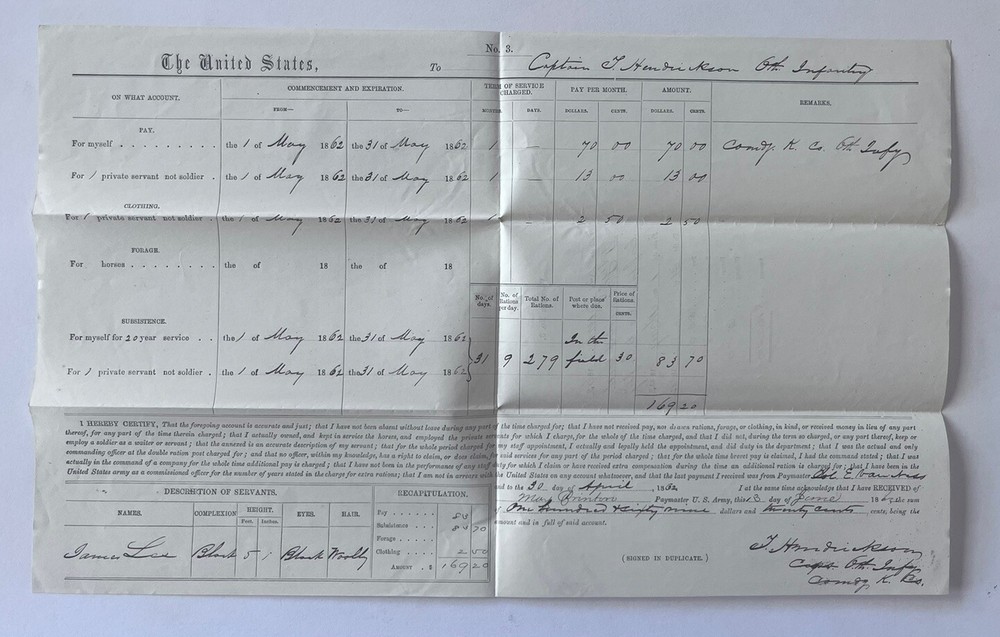 No. 3.
The United States, To Captain T Hendrickson 6th Infantry
ON WHAT ACCOUNT. COMMENCEMENT AND EXPIRATION. TERM OF SERVICE CHARGED. PAY PER MONTH. AMOUNT. REMARKS.
FROM— TO— MONTHS. DAYS. DOLLARS. CENTS. DOLLARS. CENTS.
PAY.
For myself . . . . . . . . . the 1 of May 1862 the 31 of May 1862 1 — 70 00 70 00 Comdg. K Co. 6th Infy
For 1 private servant not soldier . the 1 of May 1862 the 31 of May 1862 1 — 13 00 13 00
CLOTHING.
For 1 private servant not soldier . the 1 of May 1862 the 31 of May 1862 1 — 2 50 2 50
FORAGE.
For horses . . . . . . . . the of 18 the of 18
No. of days. No. of Rations per day. Total No. of Rations. Post or place where due. Price of Rations. CENTS.
SUBSISTENCE.
For myself for 20 year service . . the 1 of May 1862 the 31 of May 1862
31 9 279 In the field 30 83 70
For 1 private servant not soldier . the 1 of May 1862 the 31 of May 1862
169 20
I HEREBY CERTIFY, That the foregoing account is accurate and just; that I have not been absent without leave during any part of the time charged for; that I have not received pay, nor drawn rations, forage, or clothing, in kind, or received money in lieu of any part
thereof, for any part of the time therein charged; that I actually owned, and kept in service the horses, and employed the private servants for which I charge, for the whole of the time charged, and that I did not, during the term so charged, or any part thereof, keep or
employ a soldier as a waiter or servant; that the annexed is an accurate description of my servant; that for the whole period charged for my staff appointment, I actually and legally held the appointment, and did duty in the department; that I was the actual and only
commanding officer at the double ration post charged for; and that no officer, within my knowledge, has a right to claim, or does claim, for said services for any part of the period charged; that for the whole time brevet pay is claimed, I had the command stated; that I was
actually in the command of a company for the whole time additional pay is charged; that I have not been in the performance of any staff duty for which I claim or have received extra compensation during the time an additional ration is charged for; that I have been in the
United States army as a commissioned officer for the number of years stated in the charge for extra rations; that I am not in arrears with the United States on any account whatsoever, and that the last payment I received was from Paymaster Col. E.
and to the 30 day of April 1862 I at the same time acknowledge that I have RECEIVED of
Maj. Brinton Paymaster U. S. Army, this 3 day of June 1862 the sum
of One hundred & sixty nine dollars and twenty cents, being the
amount and in full of said account.
DESCRIPTION OF SERVANTS. RECAPITULATION.
NAMES. COMPLEXION HEIGHT. EYES. HAIR.
Feet. Inches.
Pay . . . . . . 83
Subsistence . . . 83 70
Forage . . . .
Clothing . . . . 2 50
Amount . $ 169 20
James Lee Black 5 1 Black Woolly
(SIGNED IN DUPLICATE.)
T. Hendrickson
Capt 6th Infy
Comdg K. Co.